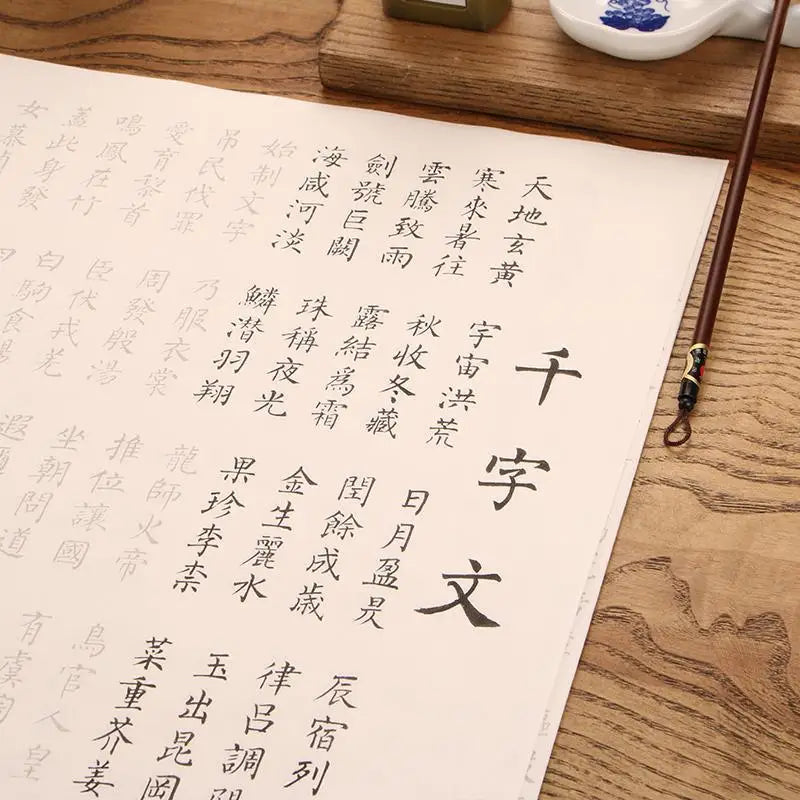 千字文
天地玄黃 宇宙洪荒 日月盈昃 辰宿列
寒來暑往 秋收冬藏 閏餘成歲 律呂調陽
雲騰致雨 露結爲霜 金生麗水 玉出昆岡
劍號巨闕 珠稱夜光 果珍李柰 菜重芥姜
海咸河淡 鱗潜羽翔 龍師火帝 鳥官人皇
始制文字 乃服衣裳 推位讓國 有虞陶
吊民伐罪 周發殷湯 坐朝問道
愛育黎首 臣伏戎羌 遐邇
鳴鳳在竹 白駒食場
蓋此身發
女慕